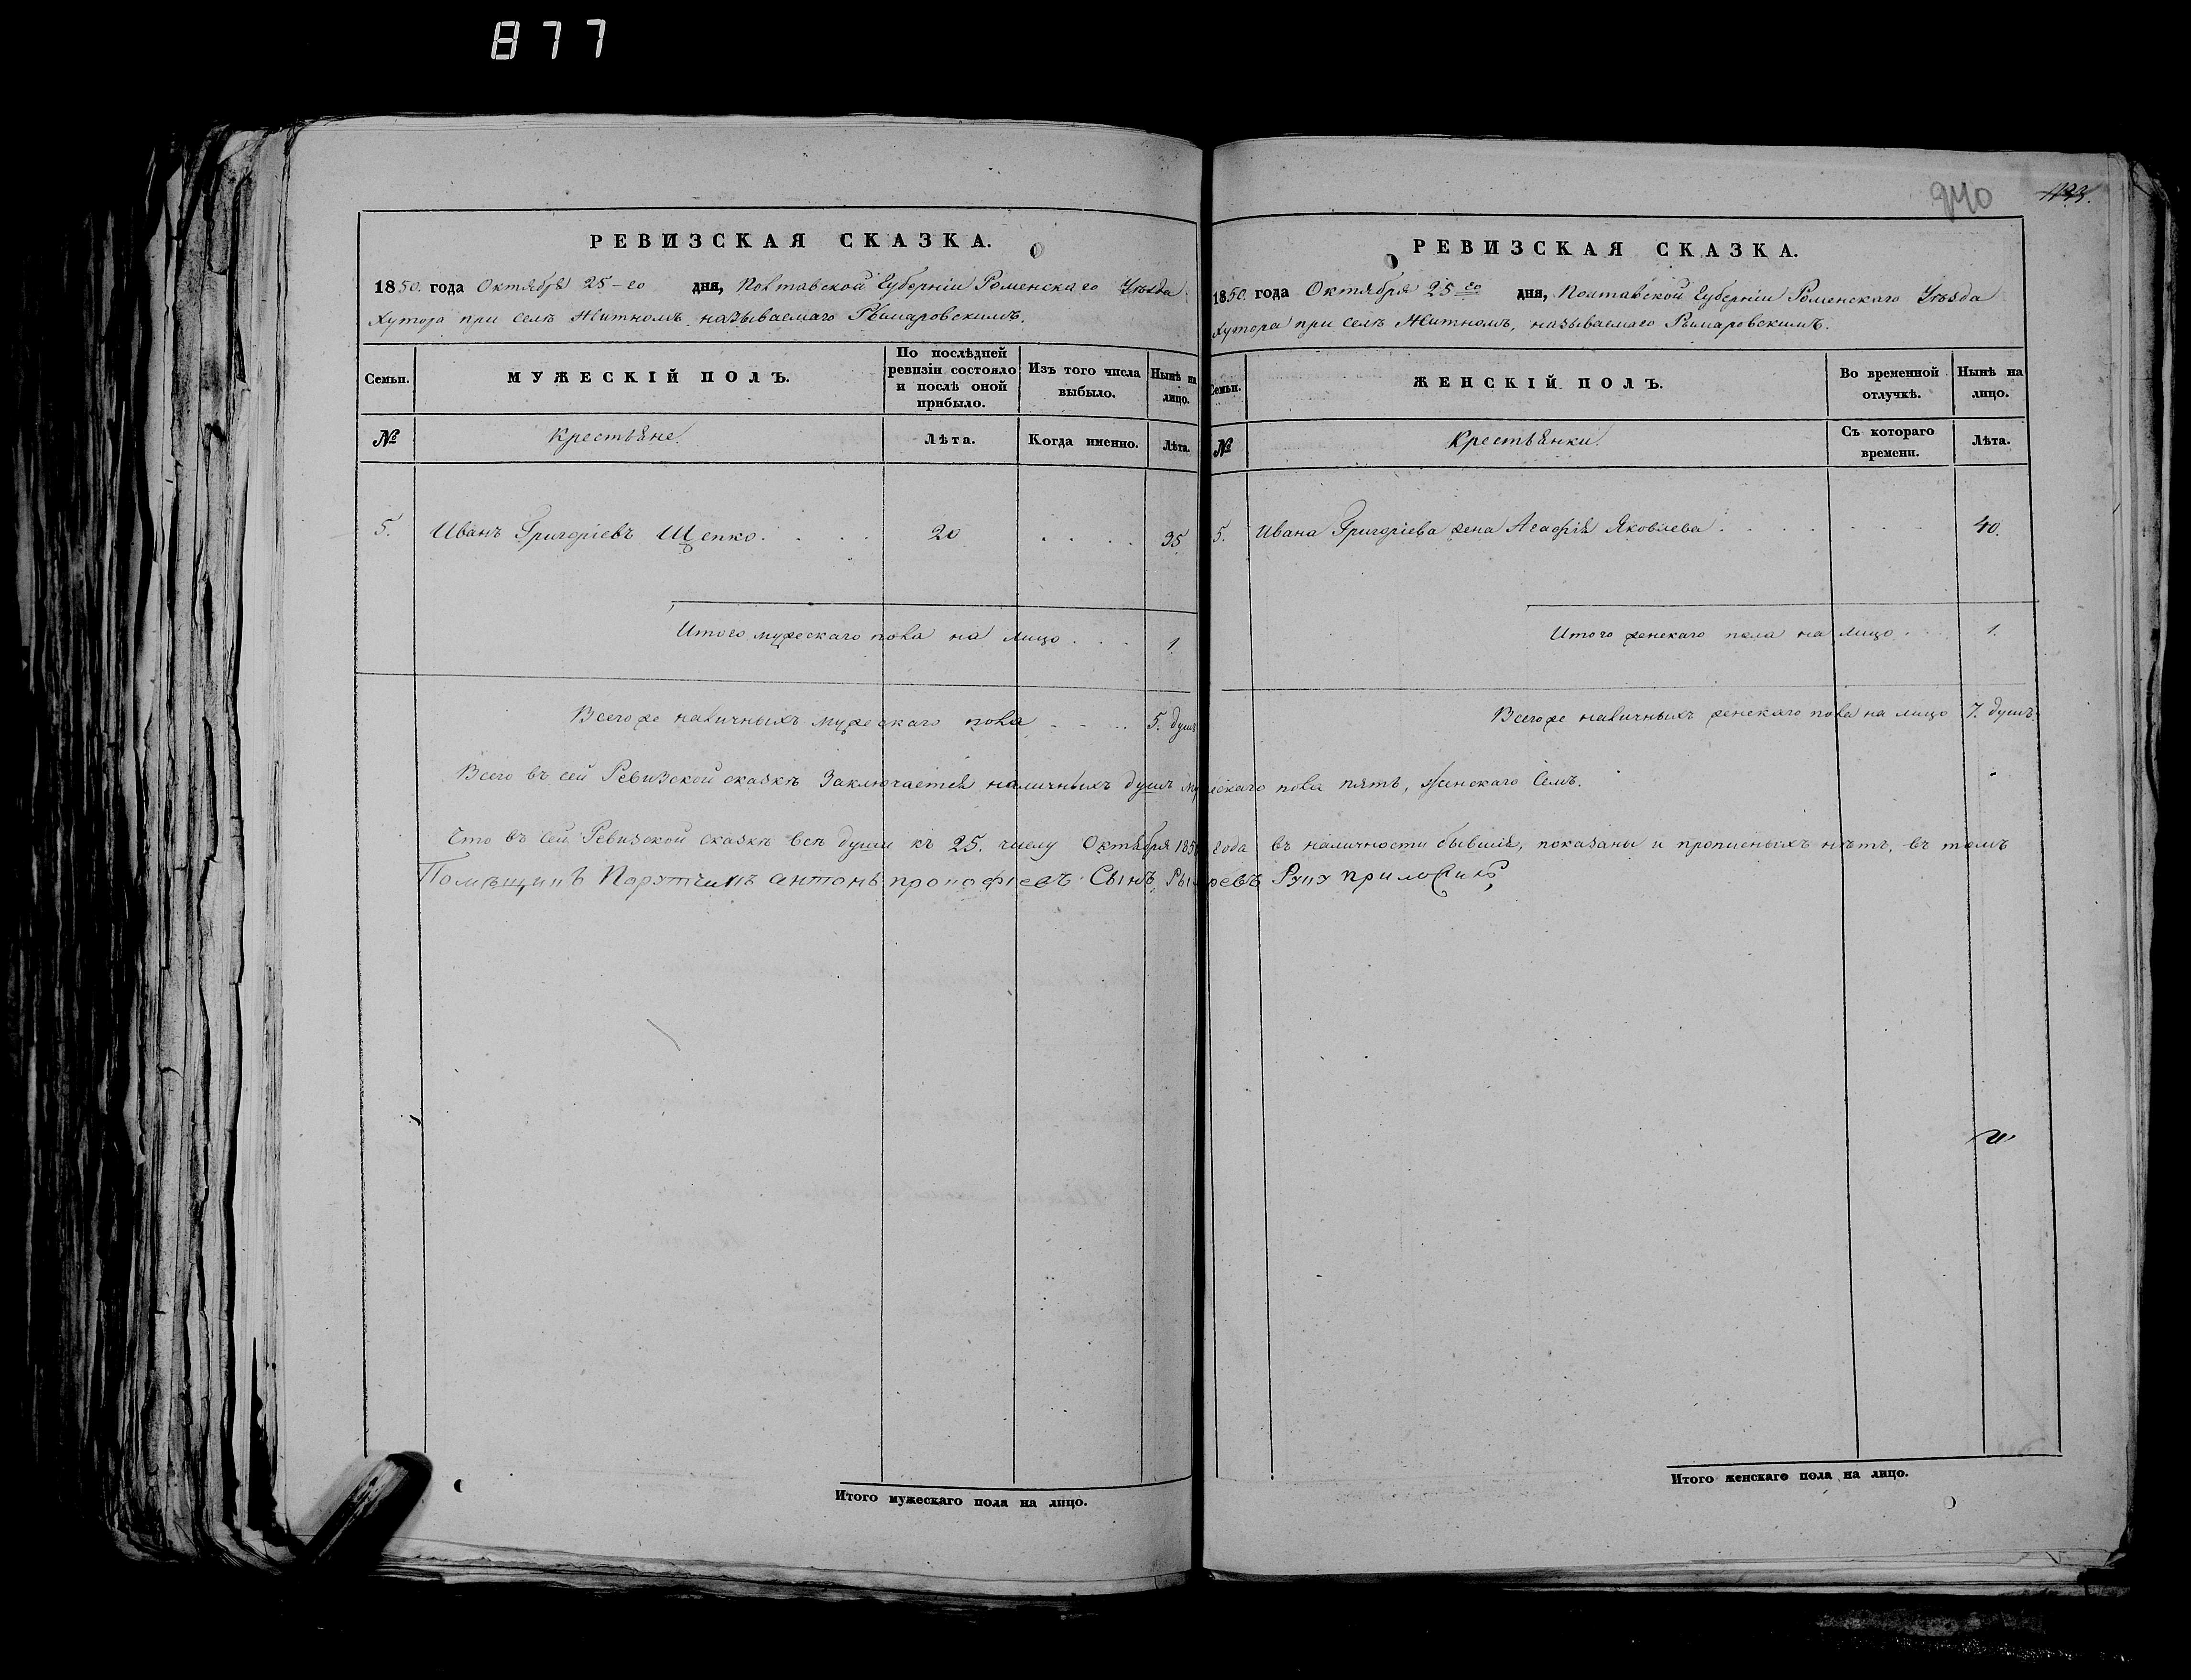 877
РЕВИЗСКАЯ СКАЗКА.
1850. года Октября 25-го дня, Полтавской Губерніи Роменскаго Уѣзда
Хутора при селѣ Житномъ называемаго Рымаровскимъ.
Семьи.
МУЖЕСКІЙ ПОЛЪ.
По послѣдней ревизіи состояло и послѣ оной прибыло.
Изъ того числа выбыло.
Нынѣ на лицо.
№
Крестьяне.
Лѣта.
Когда именно.
Лѣта.
5. Иванъ Григоріевъ Щепко. . . . . 20 . . . . 35
Итого мужескаго пола на лицо . . . 1.
Всегоже наличныхъ мужескаго пола - - - . 5. душъ
940
РЕВИЗСКАЯ СКАЗКА.
1850. года Октября 25 го дня, Полтавской Губерніи Роменскаго Уѣзда
Хутора при селѣ Житномъ, называемаго Рымаровскимъ.
Семьи.
ЖЕНСКІЙ ПОЛЪ.
Во временной отлучкѣ.
Нынѣ на лицо.
№
Крестьянки.
Съ котораго времени.
Лѣта.
5. Ивана Григоріева жена Агафія Яковлева . . . . . . . 40.
Итого женскаго пола на лицо . . . 1.
Всегоже наличныхъ женскаго пола на лицо 7. душъ
Всего въ сей Ревизской сказкѣ Заключается наличныхъ душъ мужескаго пола пять, женскаго Семь.
Что въ сей Ревизской сказкѣ всѣ души къ 25. числу Октября 1850 года въ наличности бывшія, показаны и прописныхъ нѣтъ, въ томъ
Помѣщикъ Порутчикъ антонъ прокофіевъ Сынъ Руку приложилъ
Итого мужескаго пола на лицо.
Итого женскаго пола на лицо.